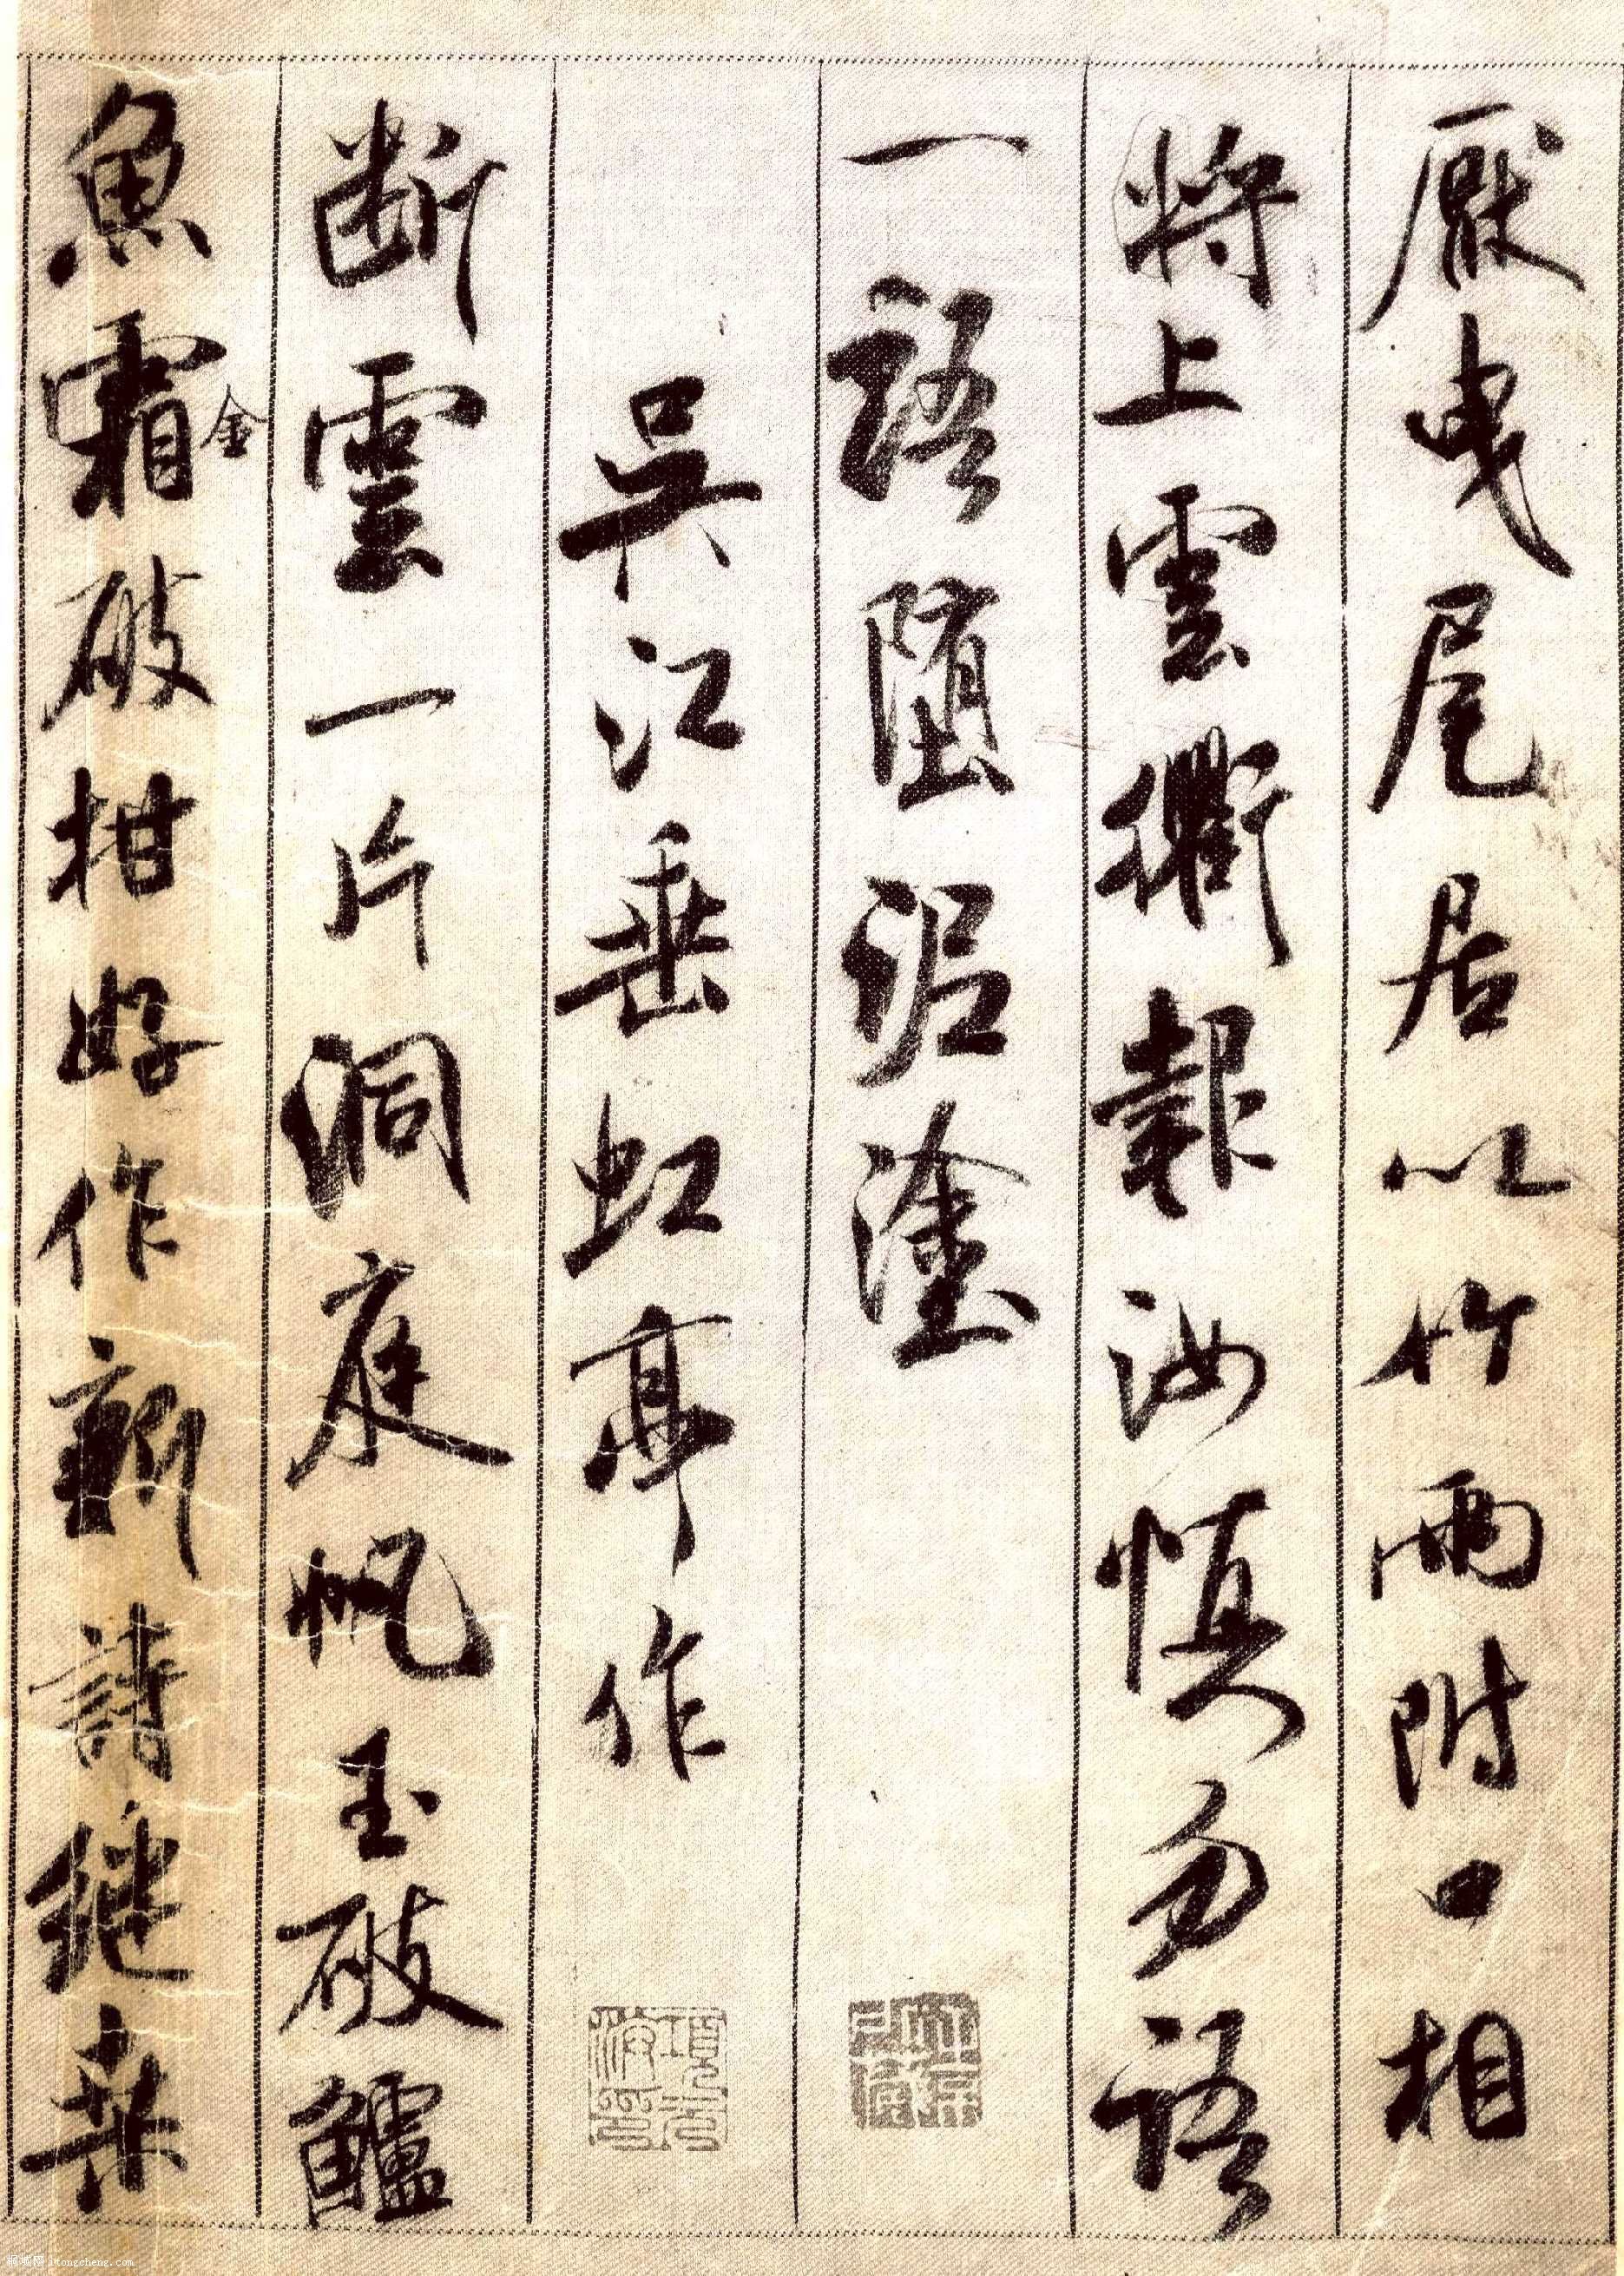 厭曳尾居以竹兩附口相
將上雲衢報汝慎勿語
一語墮泥塗
吳江垂虹亭作
斷雲一片洞庭帆玉破鱸
魚霜金破柑好作新詩繼桑
項元汴印
1tongcheng.com